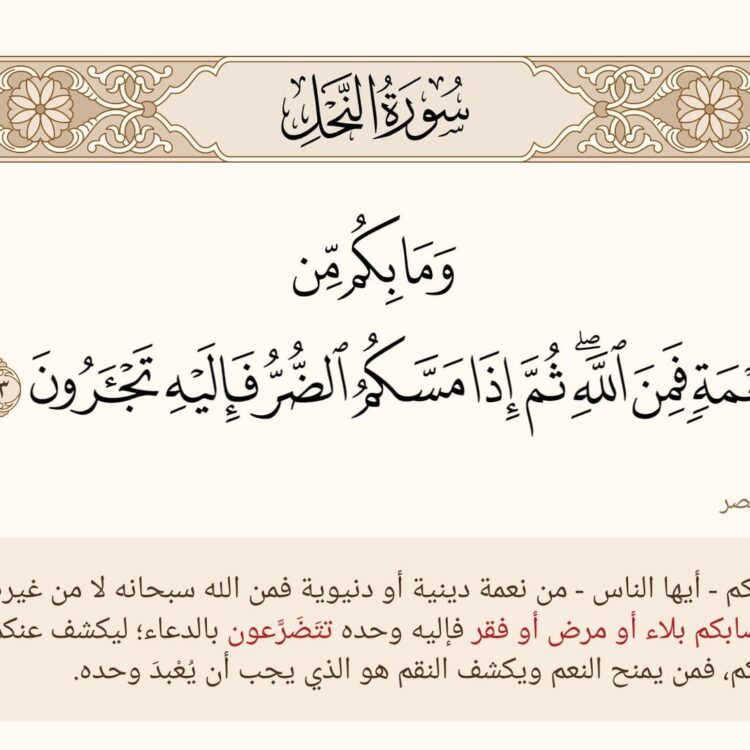 سُورَةُ النَّحْلِ
وَمَا بِكُم مِّن
فَمِنَ ٱللَّهِۖ ثُمَّ إِذَا مَسَّكُمُ ٱلضُّرُّ فَإِلَيْهِ تَجْـَٔرُونَ
- أيها الناس - من نعمة دينية أو دنيوية فمن الله سبحانه لا من
بلاء أو مرض أو فقر فإليه وحده تتَضَرَّعون بالدعاء؛ ليكشف
فمن يمنح النعم ويكشف النقم هو الذي يجب أن يُعْبدَ وحده.